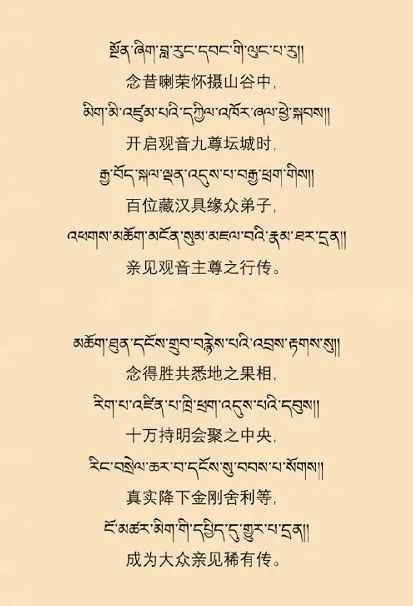 སྔོན་ཞིག་བླ་རུང་དབང་གི་ལུང་པ་རུ།།
念昔喇荣怀摄山谷中，
མིག་མི་འཛུམ་པའི་དཀྱིལ་འཁོར་ཞལ་ཕྱེ་སྐབས།།
开启观音九尊坛城时，
རྒྱ་བོད་སྐལ་ལྡན་འདུས་པ་བརྒྱ་ཕྲག་གིས།།
百位藏汉具缘众弟子，
འཕགས་མཆོག་མངོན་སུམ་མཇལ་བའི་རྣམ་ཐར་དྲན།།
亲见观音主尊之行传。
མཆོག་ཐུན་དངོས་གྲུབ་བརྙེས་པའི་འབྲས་རྟགས་སུ།།
念得胜共悉地之果相，
རིག་པ་འཛིན་པ་ཁྲི་ཕྲག་འདུས་པའི་དབུས།།
十万持明会聚之中央，
རིང་བསྲེལ་ཆར་བ་དངོས་སུ་བབས་པ་སོགས།།
真实降下金刚舍利等，
ངོ་མཚར་མིག་གི་དཔྱིད་དུ་གྱུར་པ་དྲན།།
成为大众亲见稀有传。